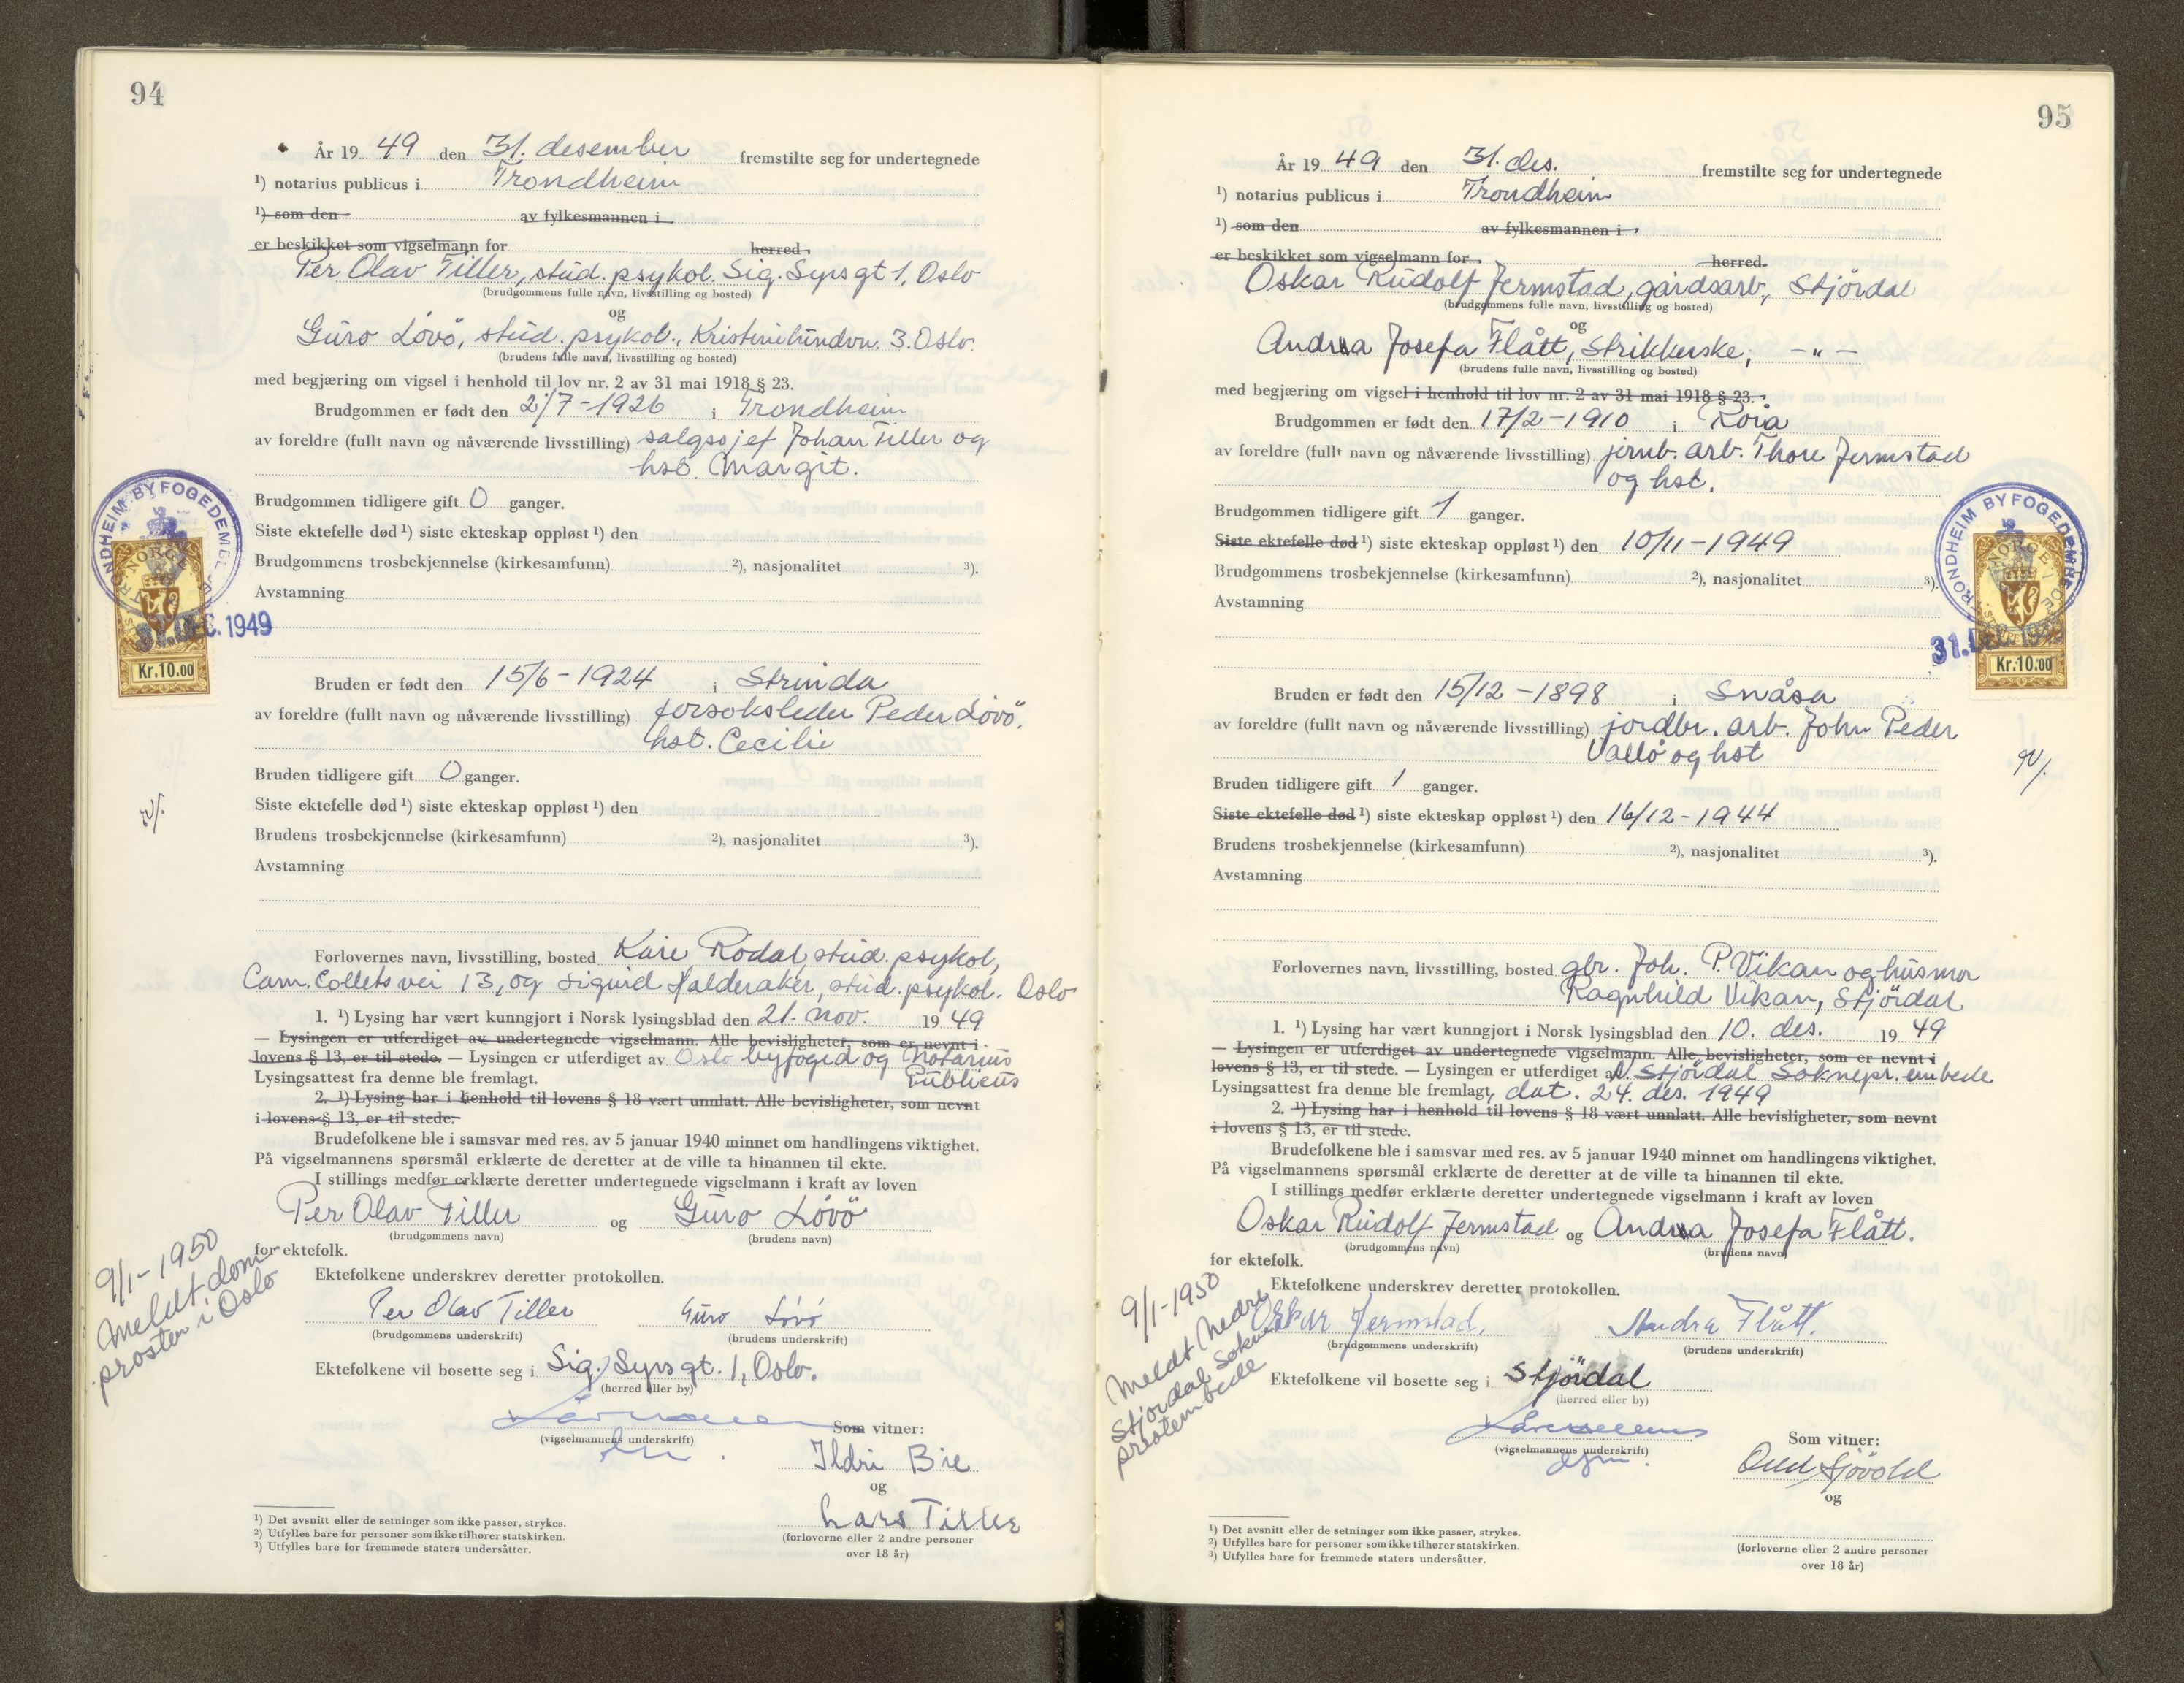 94
År 19 49 den 31. desember fremstilte seg for undertegnede
¹) notarius publicus i Trondheim
¹) som den av fylkesmannen i
er beskikket som vigselmann for herred.
Per Olav Tiller, stud. psykol. Sig. Syrs gt 1, Oslo
(brudgommens fulle navn, livsstilling og bosted)
og
Guro Lövö, stud. psykol., Kristinelundvn. 3. Oslo.
(brudens fulle navn, livsstilling og bosted)
med begjæring om vigsel i henhold til lov nr. 2 av 31 mai 1918 § 23.
Brudgommen er født den 2/7-1926 i Trondheim
av foreldre (fullt navn og nåværende livsstilling) salgssjef Johan Tiller og
hst. Margit.
Brudgommen tidligere gift 0 ganger.
Siste ektefelle død ¹) siste ekteskap oppløst ¹) den
Brudgommens trosbekjennelse (kirkesamfunn) ²), nasjonalitet ³).
Avstamning
TRONDHEIM BYFOGEDEMBEDE
NORGE
31. DEC. 1949
Kr. 10.00
Bruden er født den 15/6-1924 i Strinda
av foreldre (fullt navn og nåværende livsstilling) forsöksleder Peder Lövö.
hst. Cecilie
Bruden tidligere gift 0 ganger.
Siste ektefelle død ¹) siste ekteskap oppløst ¹) den
Brudens trosbekjennelse (kirkesamfunn) ²), nasjonalitet ³).
Avstamning
Forlovernes navn, livsstilling, bosted Kåre Rödal, stud. psykol,
Cam. Colletsvei 13, og Sigurd Halderaker, stud. psykol. Oslo
1. ¹) Lysing har vært kunngjort i Norsk lysingsblad den 21. nov. 19 49
— Lysingen er utferdiget av undertegnede vigselmann. Alle bevisligheter, som er nevnt i
lovens § 13, er til stede. — Lysingen er utferdiget av Oslo byfoged og Notarius
Lysingsattest fra denne ble fremlagt. Publicus
2. ¹) Lysing har i henhold til lovens § 18 vært unnlatt. Alle bevisligheter, som nevnt
i lovens § 13, er til stede.
Brudefolkene ble i samsvar med res. av 5 januar 1940 minnet om handlingens viktighet.
På vigselmannens spørsmål erklærte de deretter at de ville ta hinannen til ekte.
I stillings medfør erklærte deretter undertegnede vigselmann i kraft av loven
Per Olav Tiller og Guro Lövö
(brudgommens navn) (brudens navn)
for ektefolk.
9/1-1950
Meldt dom-
prosten i Oslo
Ektefolkene underskrev deretter protokollen.
Per Olav Tiller Guro Lövö
(brudgommens underskrift) (brudens underskrift)
Ektefolkene vil bosette seg i Sig. Syrs gt. 1, Oslo.
(herred eller by)
(vigselmannens underskrift)
Som vitner:
Ildri Bie
og
Lars Tiller
(forloverne eller 2 andre personer
over 18 år)
¹) Det avsnitt eller de setninger som ikke passer, strykes.
²) Utfylles bare for personer som ikke tilhører statskirken.
³) Utfylles bare for fremmede staters undersåtter.
95
År 19 49 den 31. des. fremstilte seg for undertegnede
¹) notarius publicus i Trondheim
¹) som den av fylkesmannen i
er beskikket som vigselmann for herred.
Oskar Rudolf Jermstad, gårdsarb., Stjördal
(brudgommens fulle navn, livsstilling og bosted)
og
Andrea Josefa Flått, Strikkerske, —"—
(brudens fulle navn, livsstilling og bosted)
med begjæring om vigsel i henhold til lov nr. 2 av 31 mai 1918 § 23.
Brudgommen er født den 17/2-1910 i
av foreldre (fullt navn og nåværende livsstilling) jernb. arb. Thore Jermstad
og hst.
Brudgommen tidligere gift 1 ganger.
Siste ektefelle død ¹) siste ekteskap oppløst ¹) den 10/11-1949
Brudgommens trosbekjennelse (kirkesamfunn) ²), nasjonalitet ³).
Avstamning
TRONDHEIM BYFOGEDEMBEDE
NORGE
31. DEC. 1949
Kr. 10.00
Bruden er født den 15/12-1898 i Snåsa
av foreldre (fullt navn og nåværende livsstilling) jordbr. arb. John Peder
Vallö og hst
Bruden tidligere gift 1 ganger.
Siste ektefelle død ¹) siste ekteskap oppløst ¹) den 16/12-1944
Brudens trosbekjennelse (kirkesamfunn) ²), nasjonalitet ³).
Avstamning
Forlovernes navn, livsstilling, bosted gbr. Joh. P. Vikan og husmor
Ragnhild Vikan, Stjördal
1. ¹) Lysing har vært kunngjort i Norsk lysingsblad den 10. des. 19 49
— Lysingen er utferdiget av undertegnede vigselmann. Alle bevisligheter, som er nevnt i
lovens § 13, er til stede. — Lysingen er utferdiget av N. Stjördal Soknepr. embede
Lysingsattest fra denne ble fremlagt, dat. 24. des. 1949
2. ¹) Lysing har i henhold til lovens § 18 vært unnlatt. Alle bevisligheter, som nevnt
i lovens § 13, er til stede.
Brudefolkene ble i samsvar med res. av 5 januar 1940 minnet om handlingens viktighet.
På vigselmannens spørsmål erklærte de deretter at de ville ta hinannen til ekte.
I stillings medfør erklærte deretter undertegnede vigselmann i kraft av loven
Oskar Rudolf Jermstad og Andrea Josefa Flått.
(brudgommens navn) (brudens navn)
for ektefolk.
9/1-1950
Meldt Nedre
Stjördal Sokne-
prestembede
Ektefolkene underskrev deretter protokollen.
Oskar Jermstad. Andrea Flått.
(brudgommens underskrift) (brudens underskrift)
Ektefolkene vil bosette seg i Stjördal
(herred eller by)
(vigselmannens underskrift)
Som vitner:
og
(forloverne eller 2 andre personer
over 18 år)
¹) Det avsnitt eller de setninger som ikke passer, strykes.
²) Utfylles bare for personer som ikke tilhører statskirken.
³) Utfylles bare for fremmede staters undersåtter.